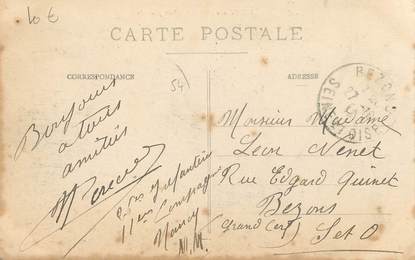 10 €
CARTE POSTALE
CORRESPONDANCE
ADRESSE
54
BEZONS
SEINE ET OISE
Bonjour
à tous
amitiés
Infanterie
11ème Compagnie
Nancy
M. M.
Monsieur Madame
Leon Nenet
Rue Edgard Quinet
Bezons
Grand Cerf) S et O